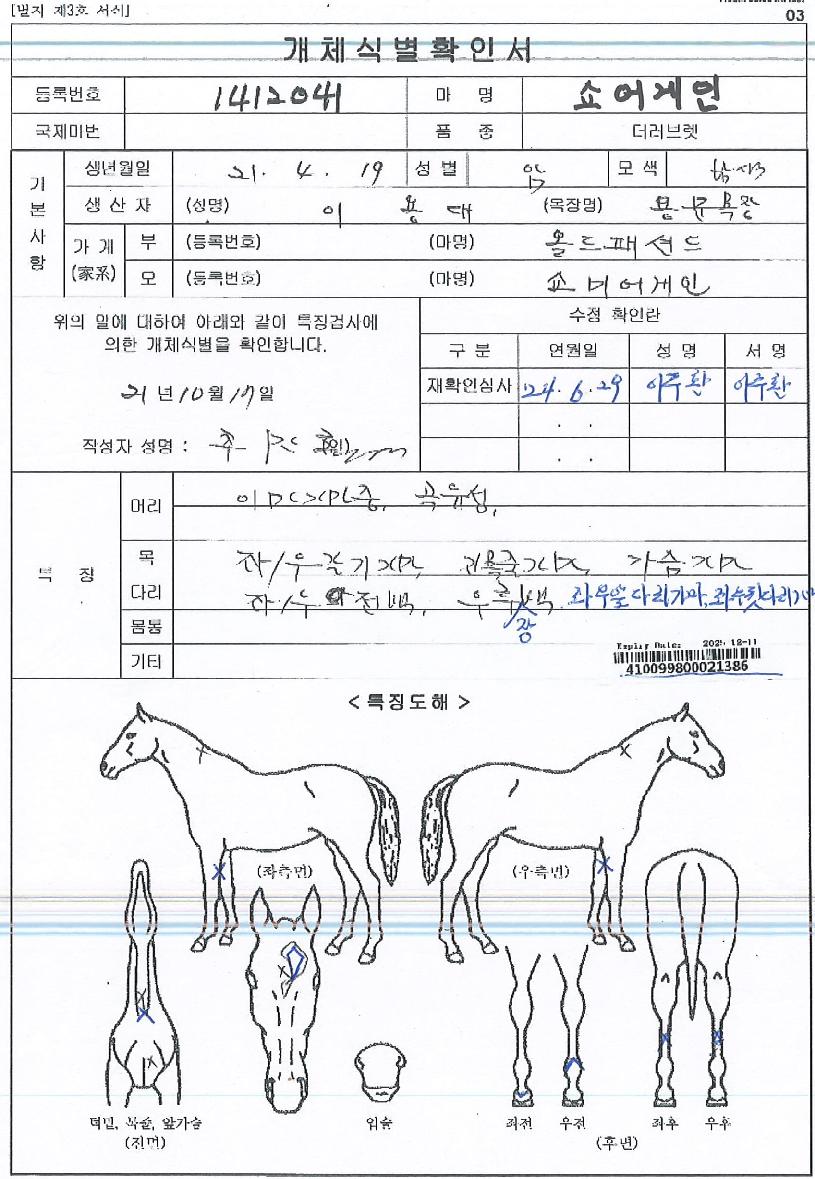 [별지 제3호 서식]
03
개체식별확인서
등록번호 1412041 마 명 쇼어게인
국제마번 품 종 더러브렛
기본사항
생년월일 21. 4. 19 성별 암 모색
생산자 (성명) 이 용 대 (목장명) 용문목장
가계 (家系) 부 (등록번호) (마명) 올드패션드
모 (등록번호) (마명) 쇼미어게인
위의 말에 대하여 아래와 같이 특징검사에
의한 개체식별을 확인합니다.
21 년 10 월 17 일
작성자 성명 :
수정 확인란
구 분 연월일 성 명 서 명
재확인심사 '24. 6. 29 이주환 이주환
. .
. .
특 징
머리
목 좌/우
다리 좌/우
장
몸통
기타
Expiry Date: 2025-12-11
410099800021386
< 특징도해 >
(좌측면) (우측면)
턱밑, 목줄, 앞가슴
(전면)
입술
좌전 우전 좌후 우후
(후면)